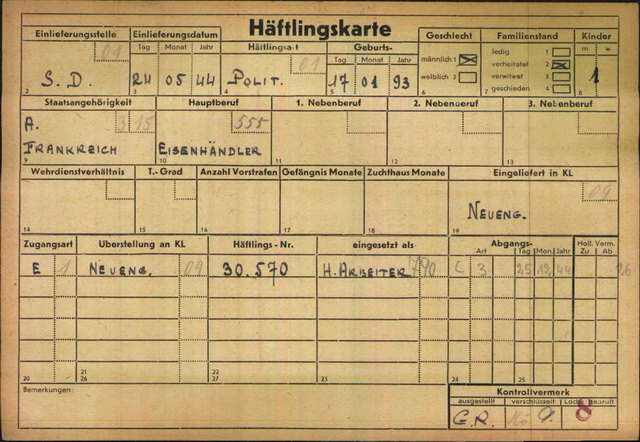 Häftlingskarte
Einlieferungsstelle
01
S. D.
2
Einlieferungsdatum
Tag Monat Jahr
24 05 44
3
Häftlingsart
01
POLIT.
4
Geburts-
Tag Monat Jahr
17 01 93
5
Geschlecht
männlich 1
weiblich 2
6
Familienstand
ledig 1
verheiratet 2
verwitwet 3
geschieden 4
7
Kinder
m w
1
8
Staatsangehörigkeit
A. 3 15
FRANKREICH
9
Hauptberuf
555
EISENHÄNDLER
10
1. Nebenberuf
11
2. Nebenberuf
12
3. Nebenberuf
13
Wehrdienstverhältnis
14
T.-Grad
15
Anzahl Vorstrafen
16
Gefängnis Monate
17
Zuchthaus Monate
18
Eingeliefert in KL
09
NEUENG.
19
Zugangsart Überstellung an KL Häftlings - Nr. eingesetzt als Abgangs- Holl. Verm.
Art Tag Mon. Jahr Zu Ab
E 1 NEUENG. 09 30.570 H. ARBEITER 790 C 3 25 12 44 26
20 21 22 23 24 25
26 27
Bemerkungen:
Kontrollvermerk
ausgestellt verschlüsselt Lochk. geprüft
G.R. 8